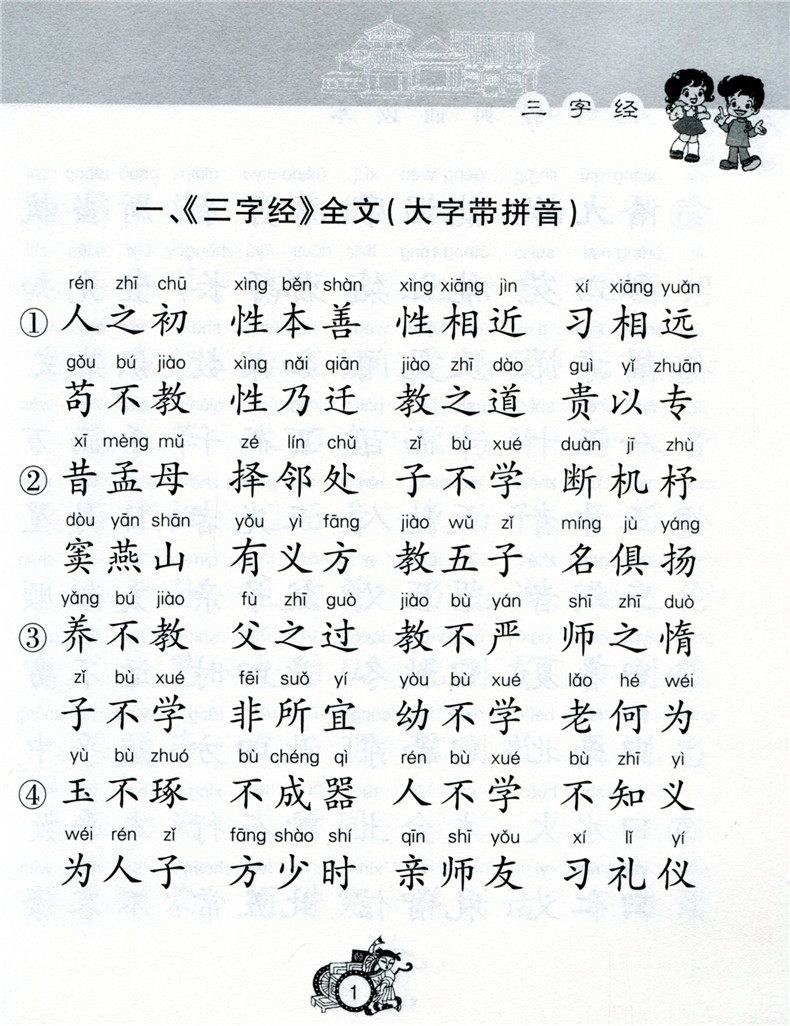 三字经
一、《三字经》全文(大字带拼音)
rén zhī chū xìng běn shàn xìng xiāng jìn xí xiāng yuǎn
①人之初 性本善 性相近 习相远
gǒu bú jiào xìng nǎi qiān jiào zhī dào guì yǐ zhuān
苟不教 性乃迁 教之道 贵以专
xī mèng mǔ zé lín chǔ zǐ bù xué duàn jī zhù
②昔孟母 择邻处 子不学 断机杼
dòu yān shān yǒu yì fāng jiào wǔ zǐ míng jù yáng
窦燕山 有义方 教五子 名俱扬
yǎng bú jiào fù zhī guò jiào bù yán shī zhī duò
③养不教 父之过 教不严 师之惰
zǐ bù xué fēi suǒ yí yòu bù xué lǎo hé wéi
子不学 非所宜 幼不学 老何为
yù bù zhuó bù chéng qì rén bù xué bù zhī yì
④玉不琢 不成器 人不学 不知义
wéi rén zǐ fāng shào shí qīn shī yǒu xí lǐ yí
为人子 方少时 亲师友 习礼仪
1